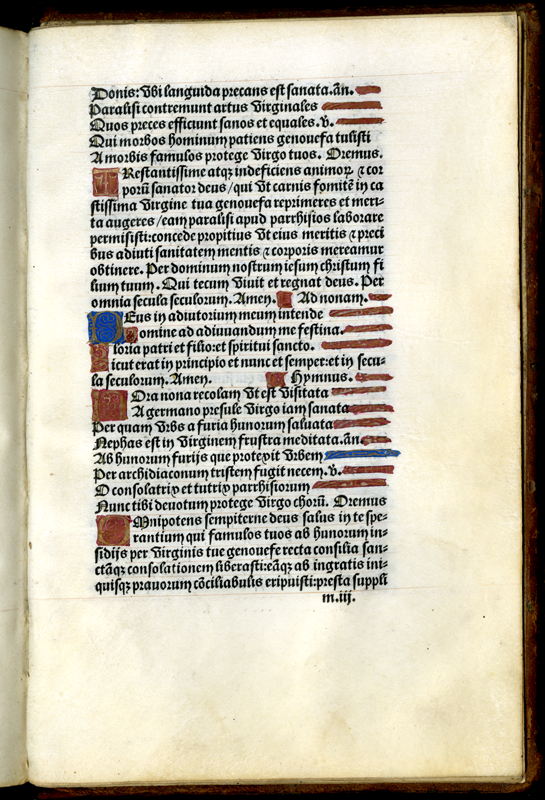 Donis: Vbi languida precans est sanata. añ.
Paralisi contremunt artus Virginales
Quos preces efficiunt sanos et equales. v.
Qui morbos hominum patiens genouefa tulisti
A morbis famulos protege Virgo tuos. Oremus.
PRestantissime atqꝫ indeficiens animoꝝ ⁊ cor
porū sanator deus / qui Vt carnis fomitē in ca
stissima Virgine tua genouefa reprimeres et meri-
ta augeres / eam paralisi apud parrhisios laborare
permisisti: concede propitius Vt eius meritis ⁊ preci
bus adiuti sanitatem mentis ⁊ corporis mereamur
obtinere. Per dominum nostrum iesum christum fi
lium tuum. Qui tecum Viuit et regnat deus. Per
omnia secula seculorum. Amen. Ad nonam.
DEus in adiutorium meum intende
Domine ad adiuuandum me festina.
Gloria patri et filio: et spiritui sancto.
Sicut erat in principio et nunc et semper: et in secu-
la seculorum. Amen. Hymnus.
HOra nona recolam Vt est Visitata
A germano presule Virgo iam sanata
Per quam Vrbs a furia hunorum saluata
Nephas est in Virginem frustra meditata. añ.
Ab hunorum furijs que protexit Vrbem
Per archidiaconum tristem fugit necem. v.
O consolatrix et tutrix parrhisiorum
Nunc tibi deuotum protege Virgo chorū. Oremus
OMnipotens sempiterne deus salus in te spe-
rantium qui famulos tuos ab hunorum in-
sidijs per Virginis tue genouefe recta consilia san-
ctāqꝫ consolationem liberasti: eāqꝫ ab ingratis ini-
quisqꝫ prauorum cōciliabulis eripuisti: presta suppli
m.iij.